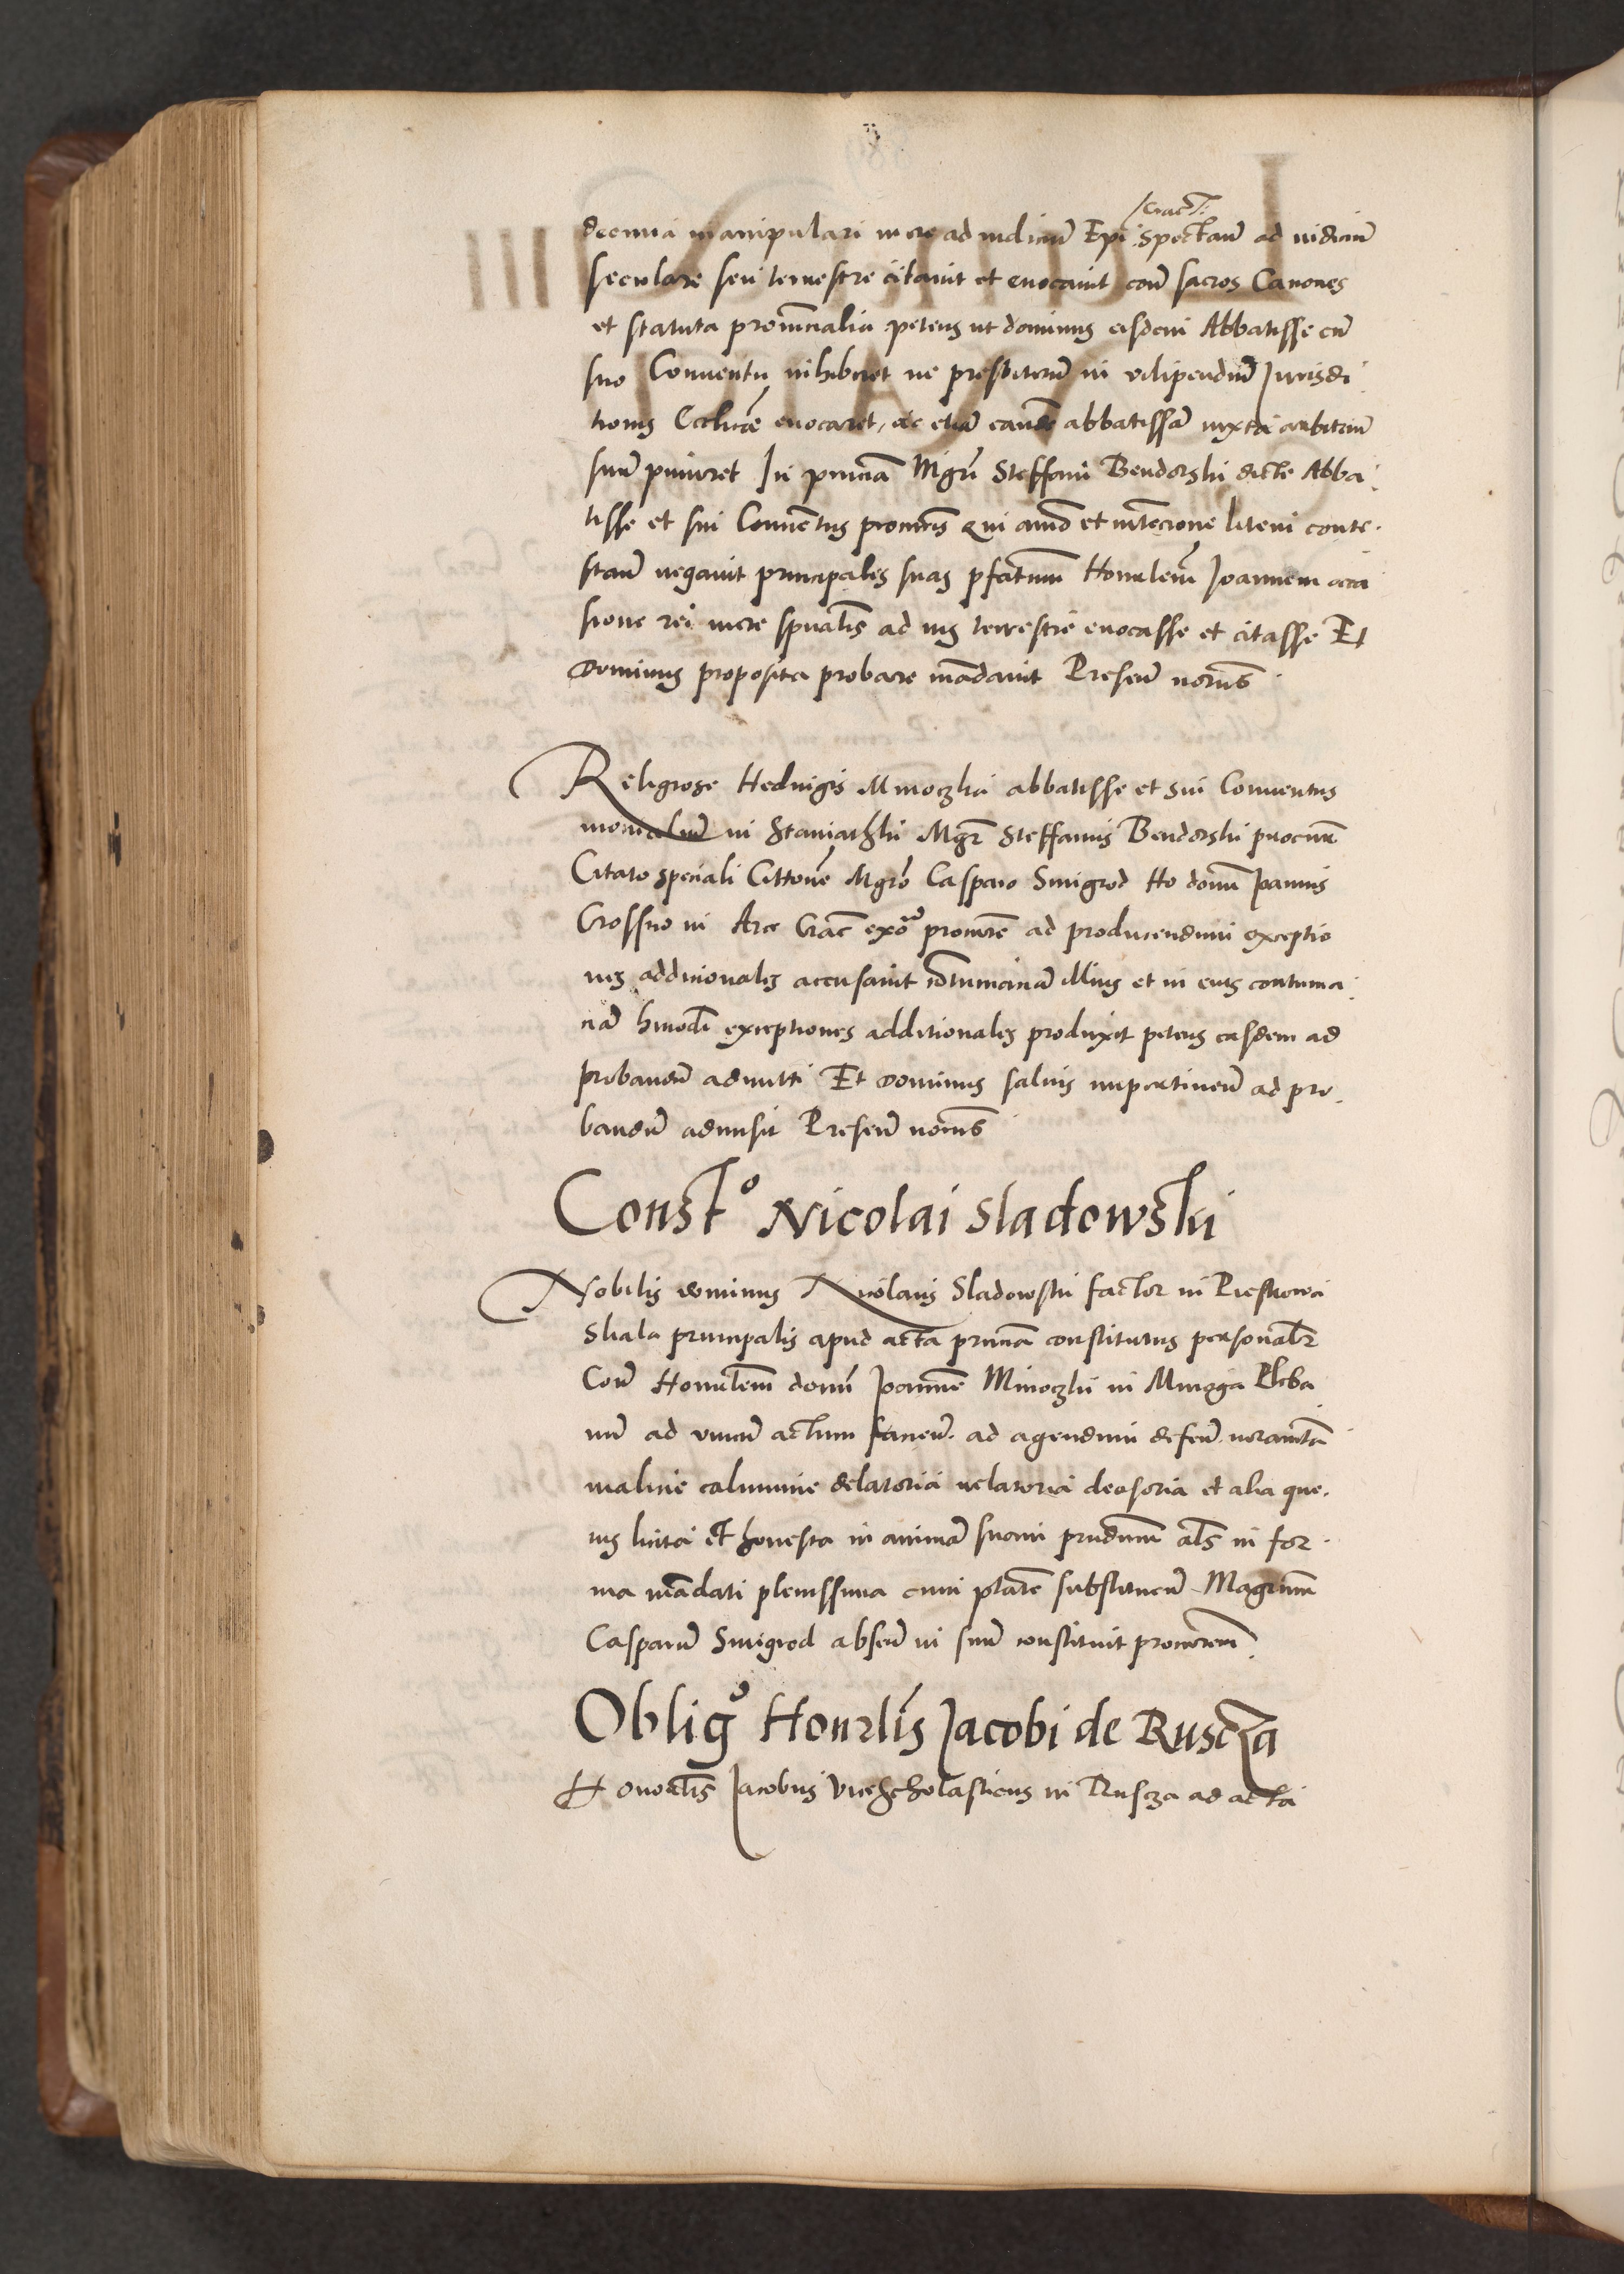 decima manipulari mere ad iudiciū Epi Crac̄. spectan̄ ad iudiciū
seculare seu terrestre citauit et euocauit con̄ sacros Canones
et statuta prouincialia petens ut dominus eisdem Abbatisse cū
suo Conuentu inhiberet ne presbiterū in vilipendiū Jurisdi
tionis Eccl̄ice euocaret, ac etiā eandē abbatissā iuxta arbitriū
suū puniret In pn̄ciā Mgr̄i Steffani Bendorski dicte Abba
tisse et sui Conuētus procur̄is Qui aīo et intēcione litem conte
stan̄ negauit principales suas p̄fatum Honor̄lem Joannem occa
sione rei mere sp̄ualis ad ius terrestre euocasse et citasse Et
Dominus proposita probare mādauit Presen̄ not̄riis
Religiose Heduigis Minoczka abbatisse et sui Conuentus
monialiū in Staniathki Mgr̄ Steffanus Bendorski procur̄
Citato speciali Citt̄one Mgr̄o Casparo Smigrod Ho domī Joannis
Crossno in Arce Crac̄ procur̄e ad producendum exceptio
nes addicionales accusauit cōtumaciā illius et in eius contuma
ciā h̄mōdi exceptiones additionales produxit petens easdem ad
probandū admitti Et Dominus saluis impertinen̄ ad pro
bandū admisit Presen̄ not̄riis
Constº Nicolai Sladowski
Nobilis dominus Nicolaus Sladowski factor in Pieskowa
Skala principalis apud acta pn̄cia constitutus personalr̄
Con̄ Honor̄lem domī Joannē Minoczki in Minoga Pleba
nū ad vnicū actum ad agendum defen̄
malicie calumnie delatoria relatoria decisoria et alia que
uis licita et honesta in animā suam prn̄dum als in for
ma mādati plenissima cum p̄tate substituen̄ Magr̄um
Casparū Smigrod absen̄ in suū constituit procur̄em
Obligº Honor̄lis Jacobi de Ruscza
Honor̄lis Jacobus Vicescholasticus in Ruscza ad acta